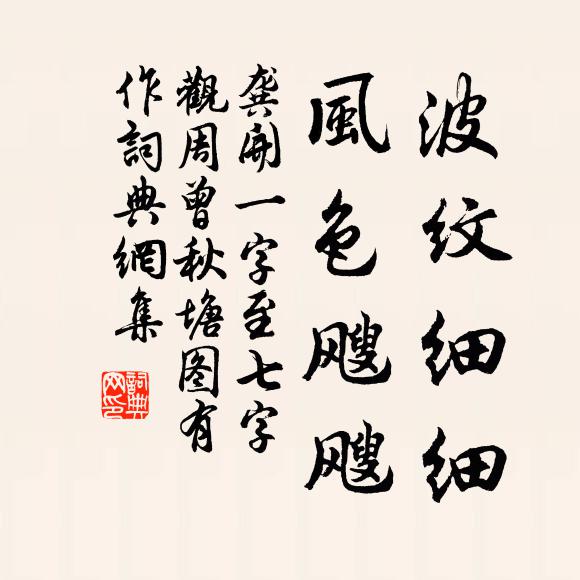 波紋細細
風色颼颼
龔開一字至七字
觀周曾秋塘图有
作詞典網集
詞典
网印